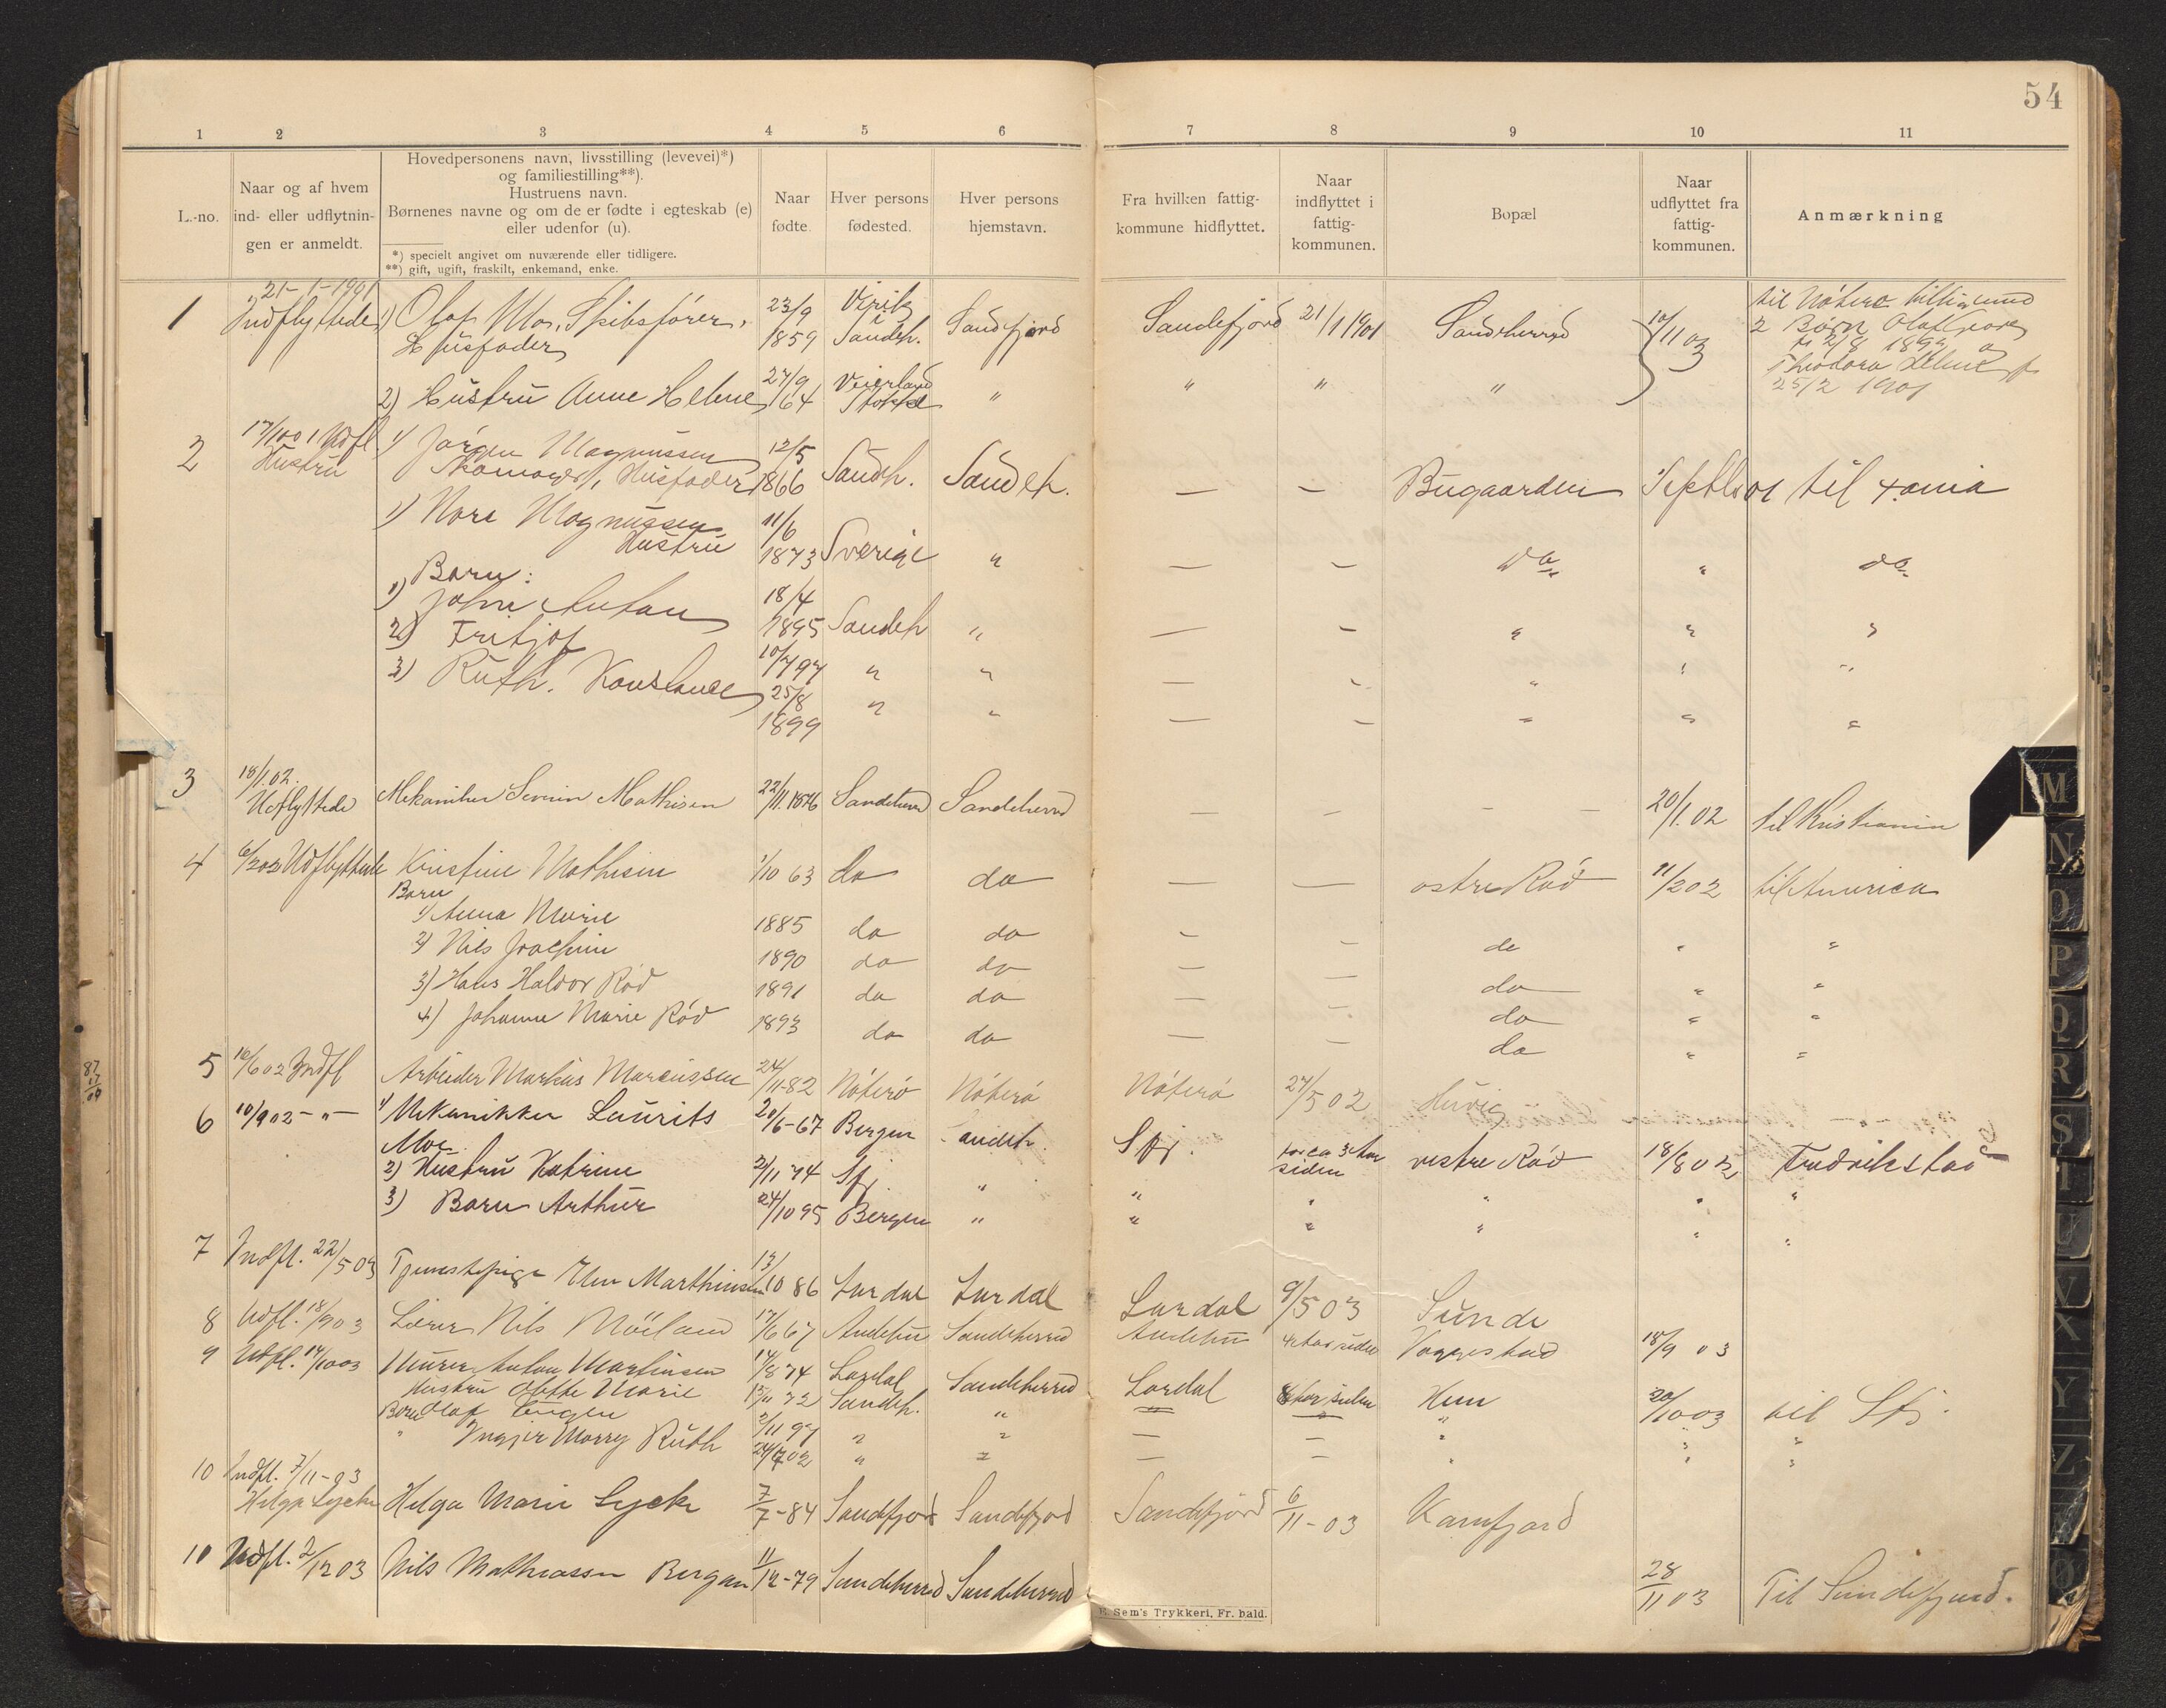 54
1 2 3 4 5 6 7 8 9 10 11
L.-no.
Naar og af hvem
ind- eller udflytnin-
gen er anmeldt.
Hovedpersonens navn, livsstilling (levevei)*)
og familiestilling**).
Hustruens navn.
Børnenes navne og om de er fødte i egteskab (e)
eller udenfor (u).
*) specielt angivet om nuværende eller tidligere.
**) gift, ugift, fraskilt, enkemand, enke.
Naar
fødte.
Hver persons
fødested.
Hver persons
hjemstavn.
Fra hvilken fattig-
kommune hidflyttet.
Naar
indflyttet i
fattig-
kommunen.
Bopæl
Naar
udflyttet fra
fattig-
kommunen.
Anmærkning
21-1-1901
1 Indflyttede 1) Olaf Moe, Skibsfører, 23/9 Virik Sandefjord 21/1 1901 Sandeherred 10/11 03 til Nøterø
Husfader 1859 Sandeh. Sandfjord 2 Børn Olaf
2/8 189
Theodora Helene f.
2) Hustru Anne Helene 27/9 64 Veierland Stokke " " " " 25/2 1901
2 17/10 01 Udfl 1) Jørgen Magnussen 12/5
Hustru Husfader 1866 Sandh. Sandeh. — — Bugaarden Septbr 01 til X.ania
1) Nora Magnussen 11/6
Hustru 1873 Sverige " — — do " do
Børn:
1) Johne Anton 18/4 1895 Sandeh " — — " " "
2) Fritjof 10/7 97 " " — — " " "
3) Ruth. Konstance 25/8 1899 " " — — " " "
3 18/1 02.
Udflyttede Mekaniker Severin Mathisen 22/11.1876 Sandeherred Sandeherred — — — 20/1.02 til Kristiania
4 6/2 02 Udflyttede Kristine Mathisen 1/10 63 do do — — østre Rød 11/2 02 til America
Børn
1) Anna Marie 1885 do do — — do " "
2) Nils Joachim 1890 do do — — do " "
3) Hans Haldor Rød 1891 do do — — do " "
4) Johanne Marie Rød 1893 do do — — do " "
5 16/6 02 Indfl Arbeider Markus Marcussen 24/11-82 Nøterø Nøterø Nøterø 27/5 02 Huvig
6 10/9 02 - " - 1) Mekanikker Laurits 20/6-67 Bergen Sandeh. Sfj. for ca 3 aar
Moe siden vestre Rød 18/8 02 Fredrikstad
2) Hustru Katrine 21/11 74 Sfj. " " " " " "
3) Barn Arthur 24/10 95 Bergen " " " " " "
7 Indfl. 22/5 03 Tjenestepige Elen Marthinsen 13/10 86 Lardal Lardal Lardal 9/5 03 Sunde
8 Udfl. 18/9 03 Lærer Nils Möiland 17/6 67 Andebu Sandeherred Andebu 4 aar siden Vaggestad 18/9 03
9 Udfl. 14/10 03 Murer Anton Martinsen 14/8 74 Lardal Sandeherred Lardal 8 aar siden Hem 20/10 03 til Sfj.
Hustru Olette Marie 15/11 72 Sandeh. " = = " " "
Børn Olaf Eugen 2/11 97 " " — — " " "
" Ingjer Marry Ruth 24/7 02 " " — —
10 Indfl. 7/11-03
Helga Lycke Helga Marie Lycke 7/7-84 Sandefjord Sandefjord Sandefjord 6/11-03 Kamfjord
10 Udfl. 2/12 03 Nils Mathiassen Bergan 11/12-79 Sandeherred Sandeherred 28/11 03 Til Sandefjord.
E. Sem's Trykkeri, Fr.hald.
87
17
09
M
N
O
P
Q
R
S
T
U
V
X
Y
Z
Æ
Ø